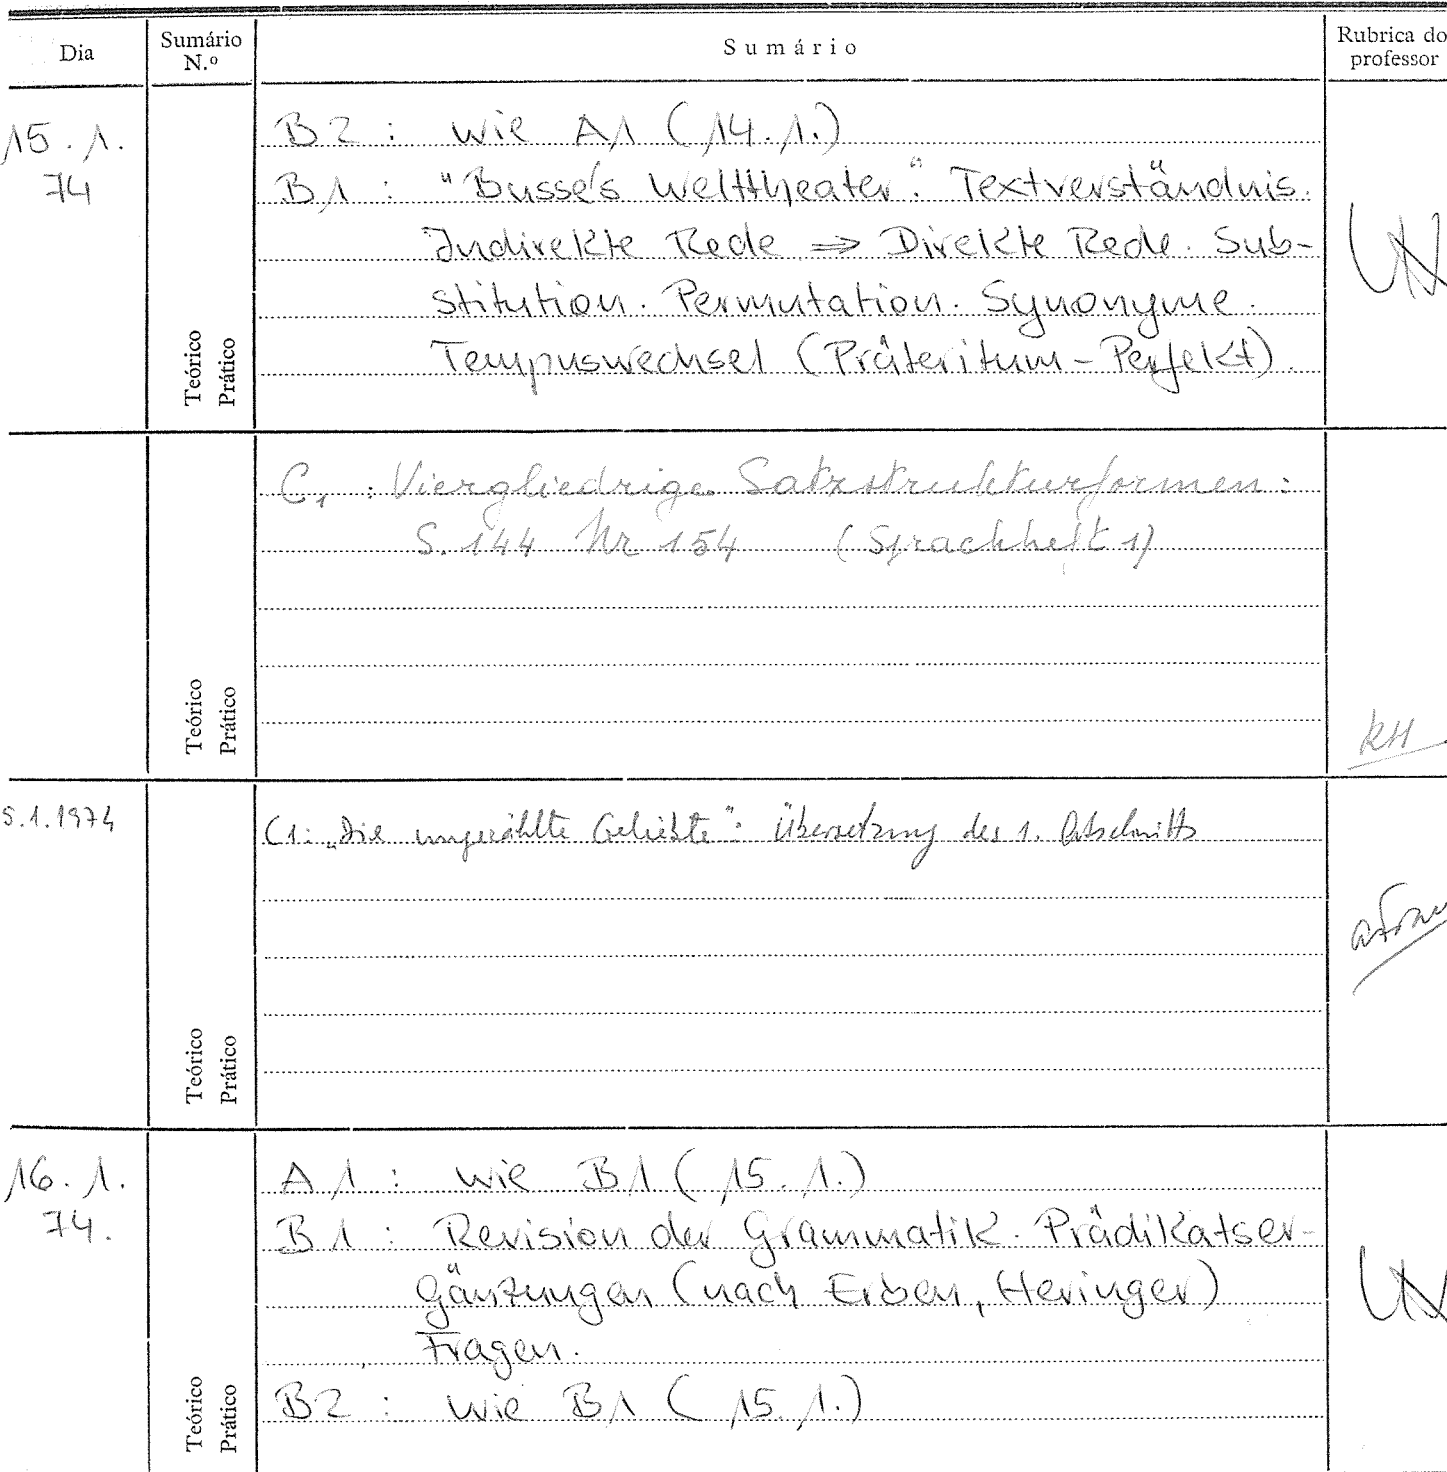 Dia Sumário N.º Sumário Rubrica do professor
15.1.74
B2 : wie A1 (14.1.)
B1 : "Busse's Welttheater". Textverständnis.
Indirekte Rede ⇒ Direkte Rede. Sub-
stitution. Permutation. Synonyme.
Tempuswechsel (Präteritum-Perfekt).
Teórico
Prático
C1 : Viergliedrige Satzstrukturformen:
S. 144 Nr 154 (Sprachheft 1)
Teórico
Prático
KH
5.1.1974
C1: „Die ungezählte Geliebte": Übersetzung des 1. Abschnitts
Teórico
Prático
16.1.74.
A1 : wie B1 (15.1.)
B1 : Revision der Grammatik. Prädikatser-
gänzungen (nach Erben, Heringer)
Fragen.
B2 : wie B1 (15.1.)
Teórico
Prático